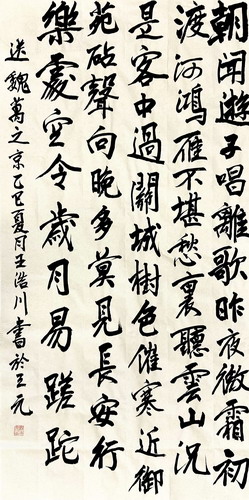 朝聞遊子唱離歌昨夜微霜初
渡河鴻雁不堪愁裏聽雲山況
是客中過關城樹色催寒近御
苑砧聲向晚多莫見長安行
樂處空令歲月易蹉跎
送魏萬之京乙巳夏月王浩川書於三元